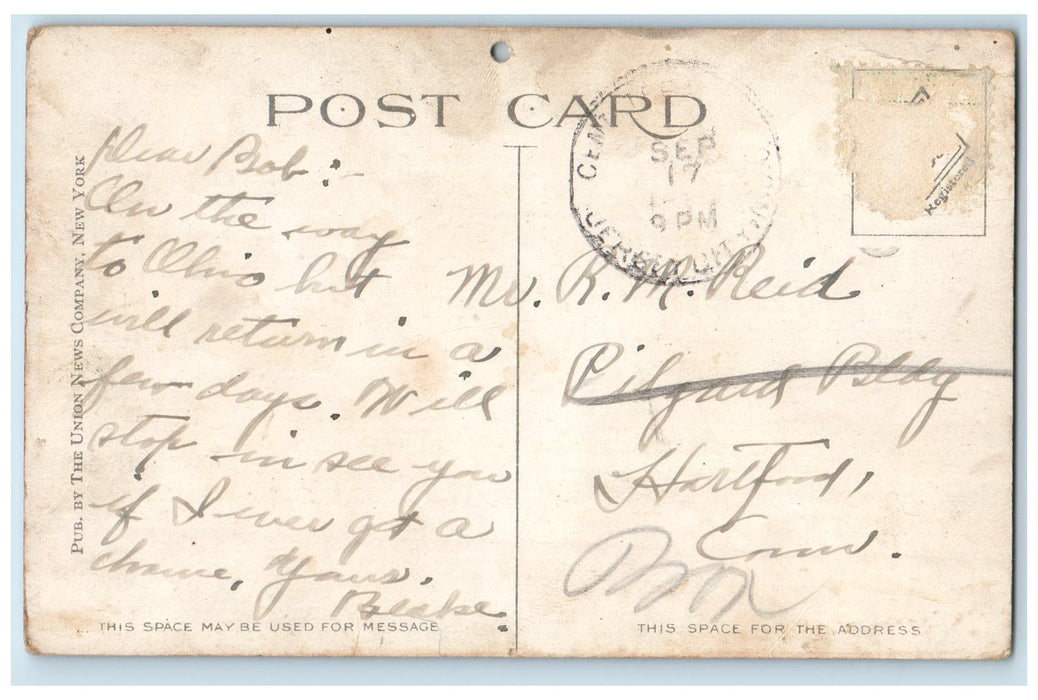 POST CARD
PUB. BY THE UNION NEWS COMPANY, NEW YORK
Dear Bob:-
On the way
to Ohio but
will return in a
few days. Will
stop in see you
if I ever get a
chance, Yours.
Blake
THIS SPACE MAY BE USED FOR MESSAGE
SEP
17
9 PM
JERSEY CITY N.J.
Registered
Mr. R. M. Reid
Pilgard Bldg
Hartford,
Conn.
THIS SPACE FOR THE ADDRESS